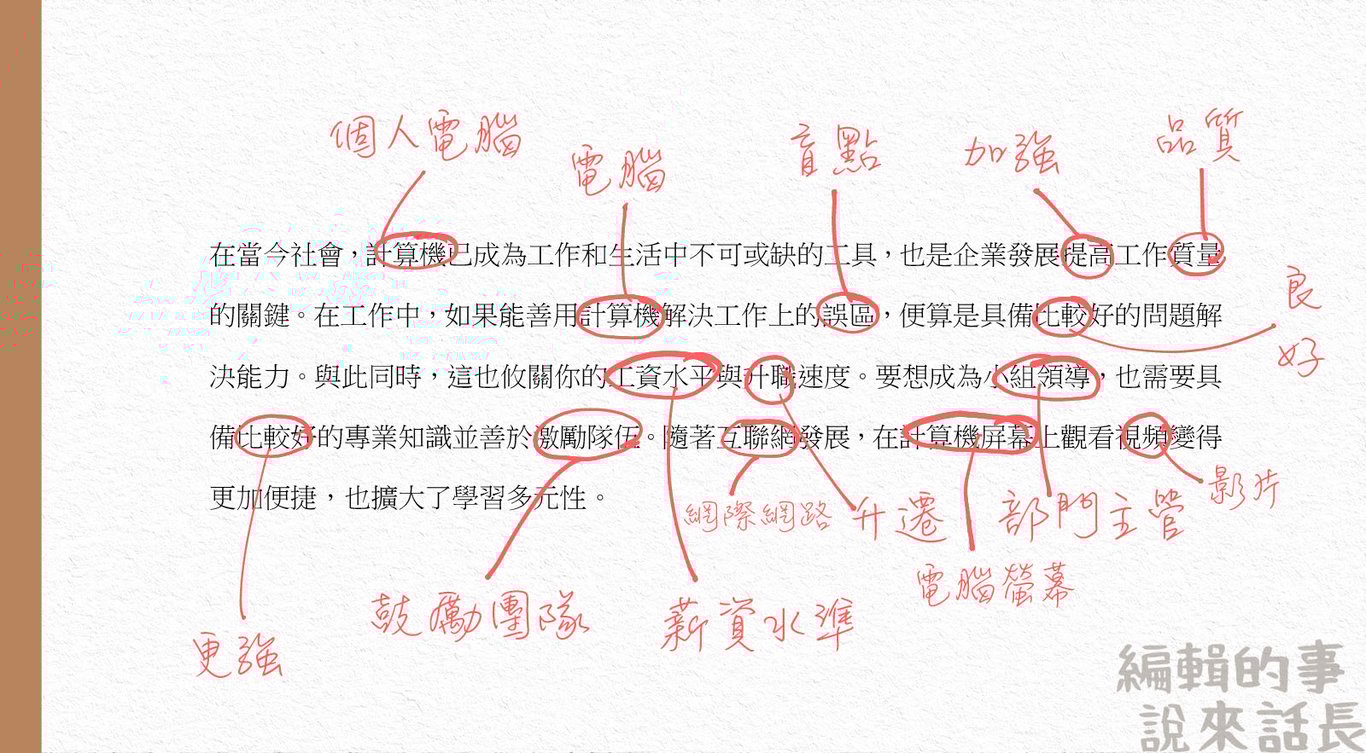 個人電腦
電腦
盲點
加強
品質
在當今社會，計算機已成為工作和生活中不可或缺的工具，也是企業發展提高工作質量
的關鍵。在工作中，如果能善用計算機解決工作上的誤區，便算是具備比較好的問題解
良好
決能力。與此同時，這也攸關你的工資水平與升職速度。要想成為小組領導，也需要具
備比較好的專業知識並善於激勵隊伍。隨著互聯網發展，在計算機屏幕上觀看視頻變得
更加便捷，也擴大了學習多元性。
影片
網際網路
升遷
部門主管
電腦螢幕
鼓勵團隊
薪資水準
更強
編輯的事
說來話長